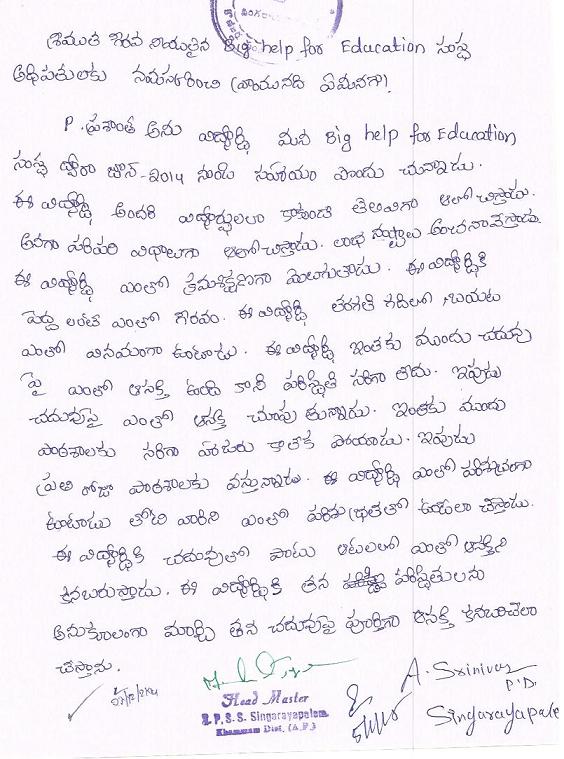 శ్రీయుత గౌరవ నీయులైన Big help for Education సంస్థ
అధిపతులకు నమస్కరించి వ్రాయునది ఏమనగా
P. ప్రశాంత్ అను విద్యార్థి మన Big help for Education
సంస్థ ద్వారా జూన్-2014 నుండి సహాయం పొందు చున్నాడు.
ఈ విద్యార్థి అందరి విద్యార్థులలా కాకుండా తెలివిగా ఆలోచిస్తాడు.
అనగా పరిపరి విధాలుగా ఆలోచిస్తాడు. లాభ నష్టాలు అంచనావేస్తాడు.
ఈ విద్యార్థి ఎంతో క్రమశిక్షణగా మెలుగుతాడు. ఈ విద్యార్థికి
పెద్ద లంటే ఎంతో గౌరవం. ఈ విద్యార్థి తరగతి గదిలో, బయట
ఎంతో వినయంగా ఉంటాడు. ఈ విద్యార్థి ఇంతకు ముందు చదువు
పై ఎంతో ఆసక్తి ఉండి కాని పరిస్థితి సరిగా లేదు. ఇపుడు
చదువుపై ఎంతో ఆసక్తి చూపు తున్నాడు. ఇంతకు ముందు
పాఠశాలకు సరిగా హాజరు కాలేక పోయాడు. ఇపుడు
ప్రతి రోజూ పాఠశాలకు వస్తున్నాడు. ఈ విద్యార్థి ఎంతో పరిశుభ్రంగా
ఉంటాడు తోటి వారిని ఎంతో పరిశుభ్రతతో ఉండేలా చేస్తాడు.
ఈ విద్యార్థికి చదువుతో పాటు ఆటలలో ఎంతో ఆసక్తిని
కనబరుస్తాడు. ఈ విద్యార్థికి తన పరిస్థితులను
అనుకూలంగా మార్చి తన చదువుపై పూర్తిగా ఆసక్తి కనబరిచేలా
చేస్తాను.
Head Master
Z.P.S.S. Singarayapalem
Khammam Dist. (A.P.)
A. Srinivas
P.D.
Singarayapale